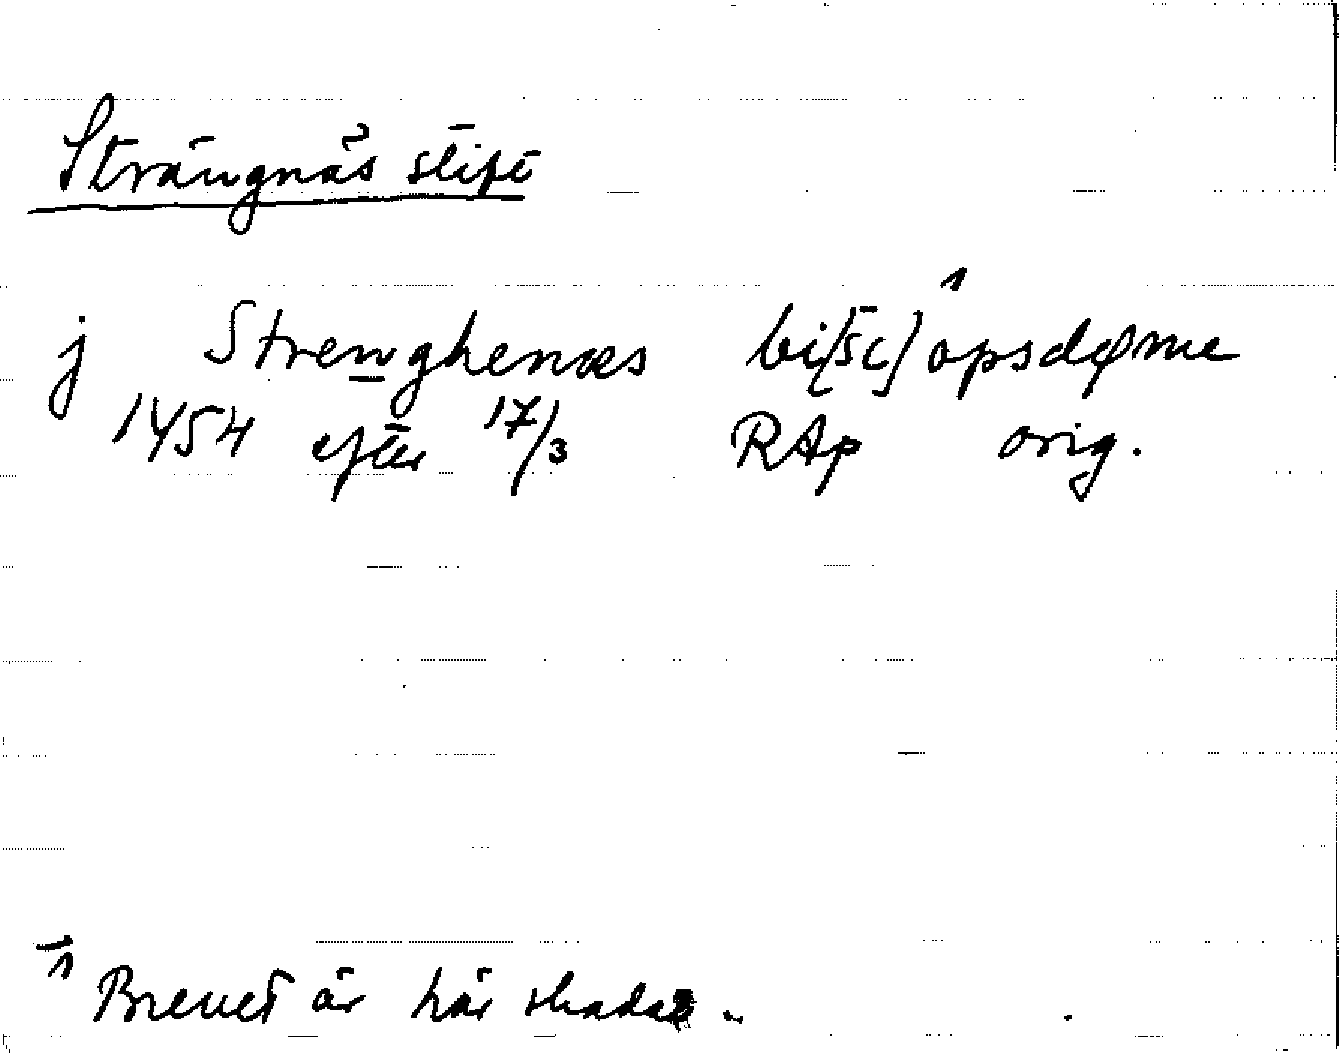 Strängnäs stift
j Strenghenæs bi[sc]opsdøme 1
1454 efter 17/3 RAp orig.
1 Brevet är här skadat.